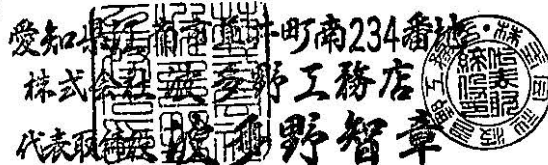 愛知県江南市 町南234番地
株式会社波多野工務店
代表取締役 波多野智章